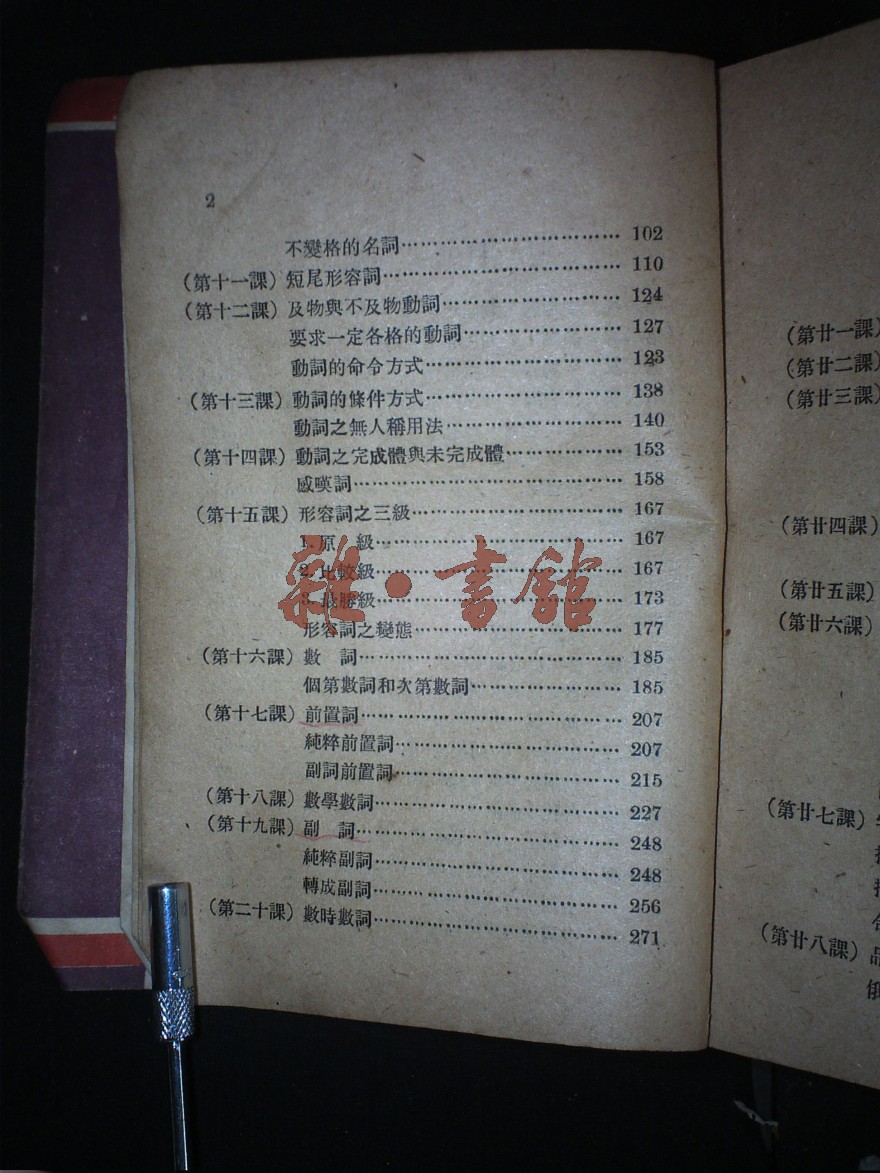 2
不變格的名詞……………………………… 102
(第十一課) 短尾形容詞……………………………… 110
(第十二課) 及物與不及物動詞……………………… 124
要求一定各格的動詞…………………… 127
動詞的命令方式………………………… 123
(第十三課) 動詞的條件方式………………………… 138
動詞之無人稱用法……………………… 140
(第十四課) 動詞之完成體與未完成體……………… 153
感嘆詞…………………………………… 158
(第十五課) 形容詞之三級…………………………… 167
1. 原　級………………………………… 167
2. 比較級………………………………… 167
3. 最勝級………………………………… 173
形容詞之變態…………………………… 177
(第十六課) 數　詞…………………………………… 185
個第數詞和次第數詞…………………… 185
(第十七課) 前置詞…………………………………… 207
純粹前置詞……………………………… 207
副詞前置詞……………………………… 215
(第十八課) 數學數詞………………………………… 227
(第十九課) 副　詞…………………………………… 248
純粹副詞………………………………… 248
轉成副詞………………………………… 256
(第二十課) 數時數詞………………………………… 271
雜·書館
(第廿一課)
(第廿二課)
(第廿三課)
(第廿四課)
(第廿五課)
(第廿六課)
(第廿七課)
(第廿八課) 品
俄